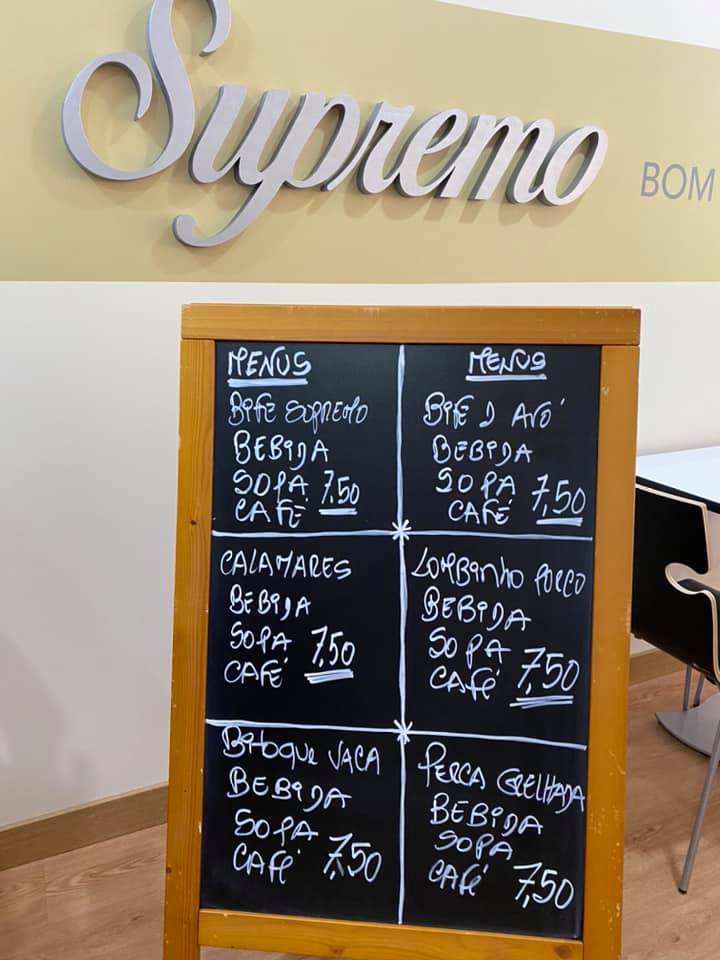 Supremo
BOM
MENUS
BIFE SUPREMO
BEBIDA
SOPA 7,50
CAFÉ
MENUS
BIFE D AVÓ
BEBIDA
SOPA 7,50
CAFÉ
CALAMARES
BEBIDA
SOPA 7,50
CAFÉ
LOMBINHO PORCO
BEBIDA
SOPA 7,50
CAFÉ
BITOQUE VACA
BEBIDA
SOPA
CAFÉ 7,50
PERCA GRELHADA
BEBIDA
SOPA
CAFÉ 7,50